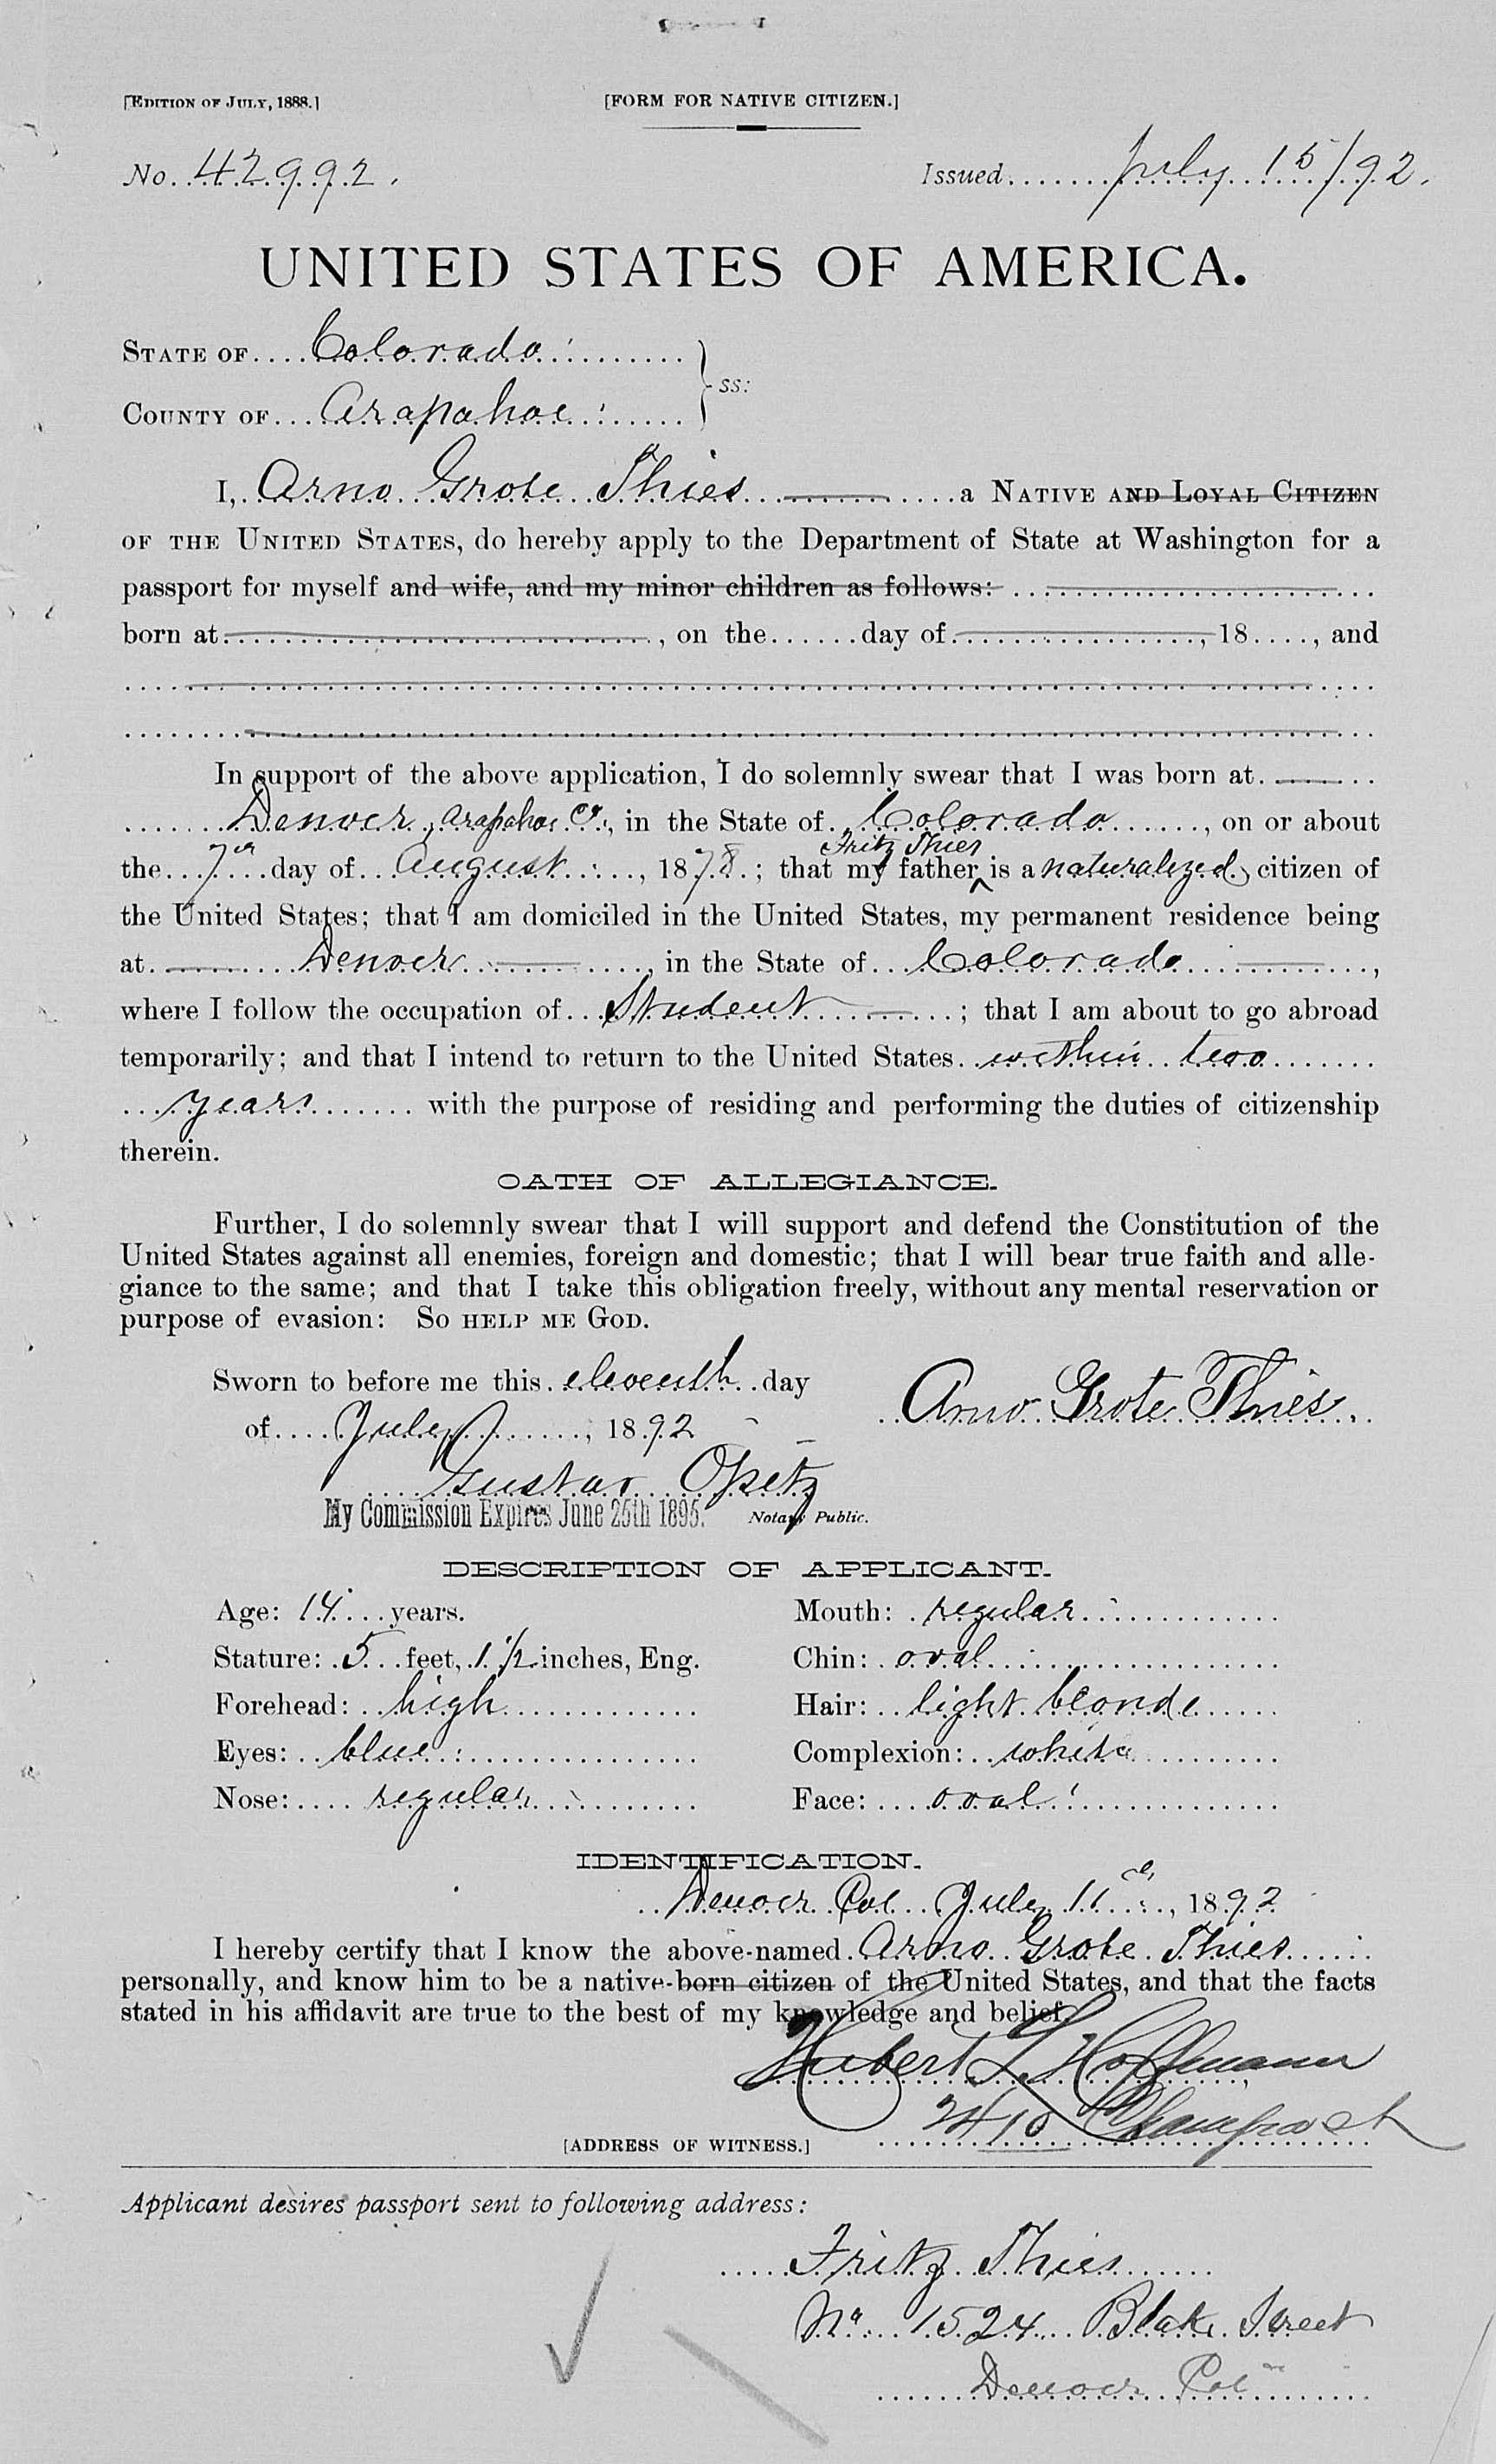 [EDITION OF JULY, 1888.]
[FORM FOR NATIVE CITIZEN.]
No. 42992.
Issued July 15/92.
UNITED STATES OF AMERICA.
STATE OF Colorado
COUNTY OF Arapahoe
ss:
I, Arno Grote Thies a NATIVE AND LOYAL CITIZEN
OF THE UNITED STATES, do hereby apply to the Department of State at Washington for a
passport for myself and wife, and my minor children as follows:
born at , on the day of , 18 , and
In support of the above application, I do solemnly swear that I was born at
Denver, Arapahoe Co., in the State of Colorado , on or about
Fritz Thies
the 7th day of August , 1878; that my father is a naturalized citizen of
the United States; that I am domiciled in the United States, my permanent residence being
at Denver , in the State of Colorado ,
where I follow the occupation of Student ; that I am about to go abroad
temporarily; and that I intend to return to the United States within two
years with the purpose of residing and performing the duties of citizenship
therein.
OATH OF ALLEGIANCE.
Further, I do solemnly swear that I will support and defend the Constitution of the
United States against all enemies, foreign and domestic; that I will bear true faith and alle-
giance to the same; and that I take this obligation freely, without any mental reservation or
purpose of evasion: SO HELP ME GOD.
Sworn to before me this eleventh day
Arno Grote Thies.
of July , 1892
Gustav Opetz
My Commission Expires June 25th 1895.
Notary Public.
DESCRIPTION OF APPLICANT.
Age: 14 years.
Mouth: regular
Stature: 5 feet, 1 1/2 inches, Eng.
Chin: oval
Forehead: high
Hair: light blonde
Eyes: blue
Complexion: white
Nose: regular
Face: oval
IDENTIFICATION.
Denver Col July 11th, 1892
I hereby certify that I know the above-named Arno Grote Thies
personally, and know him to be a native-born citizen of the United States, and that the facts
stated in his affidavit are true to the best of my knowledge and belief.
Hubert L Hoffmann
2410 Champa St
[ADDRESS OF WITNESS.]
Applicant desires passport sent to following address:
Fritz Thies
No 1524 Blake Street
Denver Col